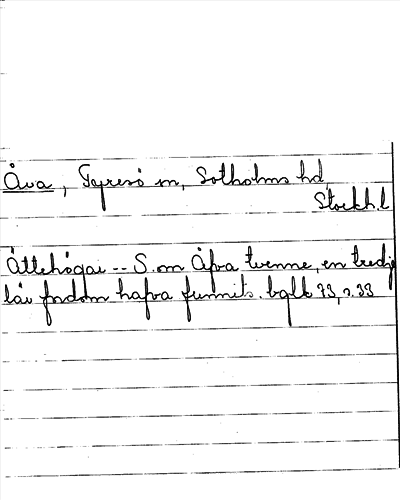 Åva, Tyresö sn, Sotholms hd,
Stockh. l
Ättehögar -- S. om Åfva tvenne, en tredje
lär fordom hafva funnits. bglb 73, s. 33